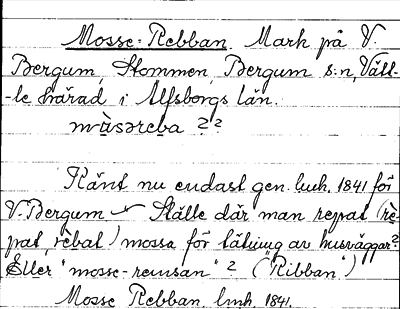 Mosse-Rebban. Mark på V.
Bergum, Stommen, Bergum s:n, Vätt-
-le härad i Älfsborgs län.
màsəreba ??
Känt nu endast gen. lmh. 1841 för
V. Bergum Ställe där man repat (rè-
pat, rèbat) mossa för tätning av husväggar?
Eller "mosse-remsan"? ("Ribban")
Mosse Rebban. lmh. 1841.